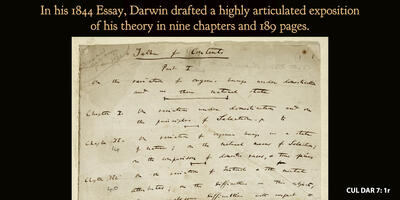 In his 1844 Essay, Darwin drafted a highly articulated exposition
of his theory in nine chapters and 189 pages.
Table of Contents
Part I
On the variation of organic beings under domestication
and in their natural state
Chapter I. On variation under domestication and on
the principles of Selection.
Chapter II. On variation of organic beings in a state
of nature; on the natural means of Selection;
on the comparison of domestic races, & true species
Chapter III. On variation of instincts & other mental
attributes; on the difficulties on this subject,
difficulties with respect to
CUL DAR 7: 1r